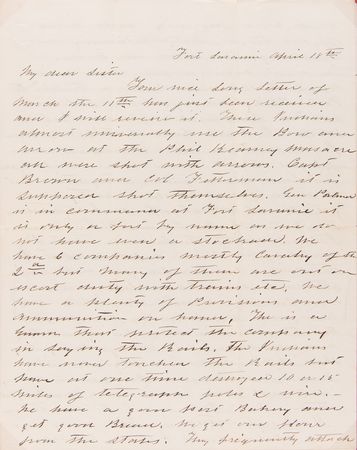 Fort Laramie April 18th
My dear Sister
Your nice long letter of
March the 11th has just been received
and I will review it. These Indians
almost universally use the Bow and
arrow at the Phil Kearney Massacre
all were shot with arrows. Capt
Brown and Col Fetterman it is
supposed shot themselves. Gen Palmer
is in command at Fort Laramie it
is only a fort by name as we do
not have even a stockade. We
have 6 companies mostly Cavalry of the
2d but many of them are out on
escort duty with trains etc. We
have a plenty of Provisions and
ammunition on hand. The is a
Guard that protect the company
in laying the Rails. the Indians
have never touched the Rails but
have at one time destroyed 10 or 15
miles of telegraph poles & wire.
We have a good Post Bakery and
get good Bread. We get our flour
from the States. They frequently attack